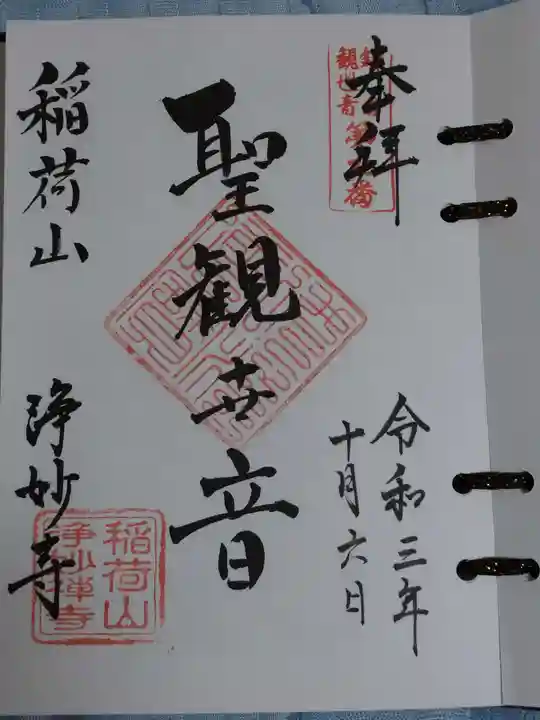 奉拝
令和三年
十月六日
聖観世音
稲荷山
浄妙寺
稲荷山
浄妙禅寺